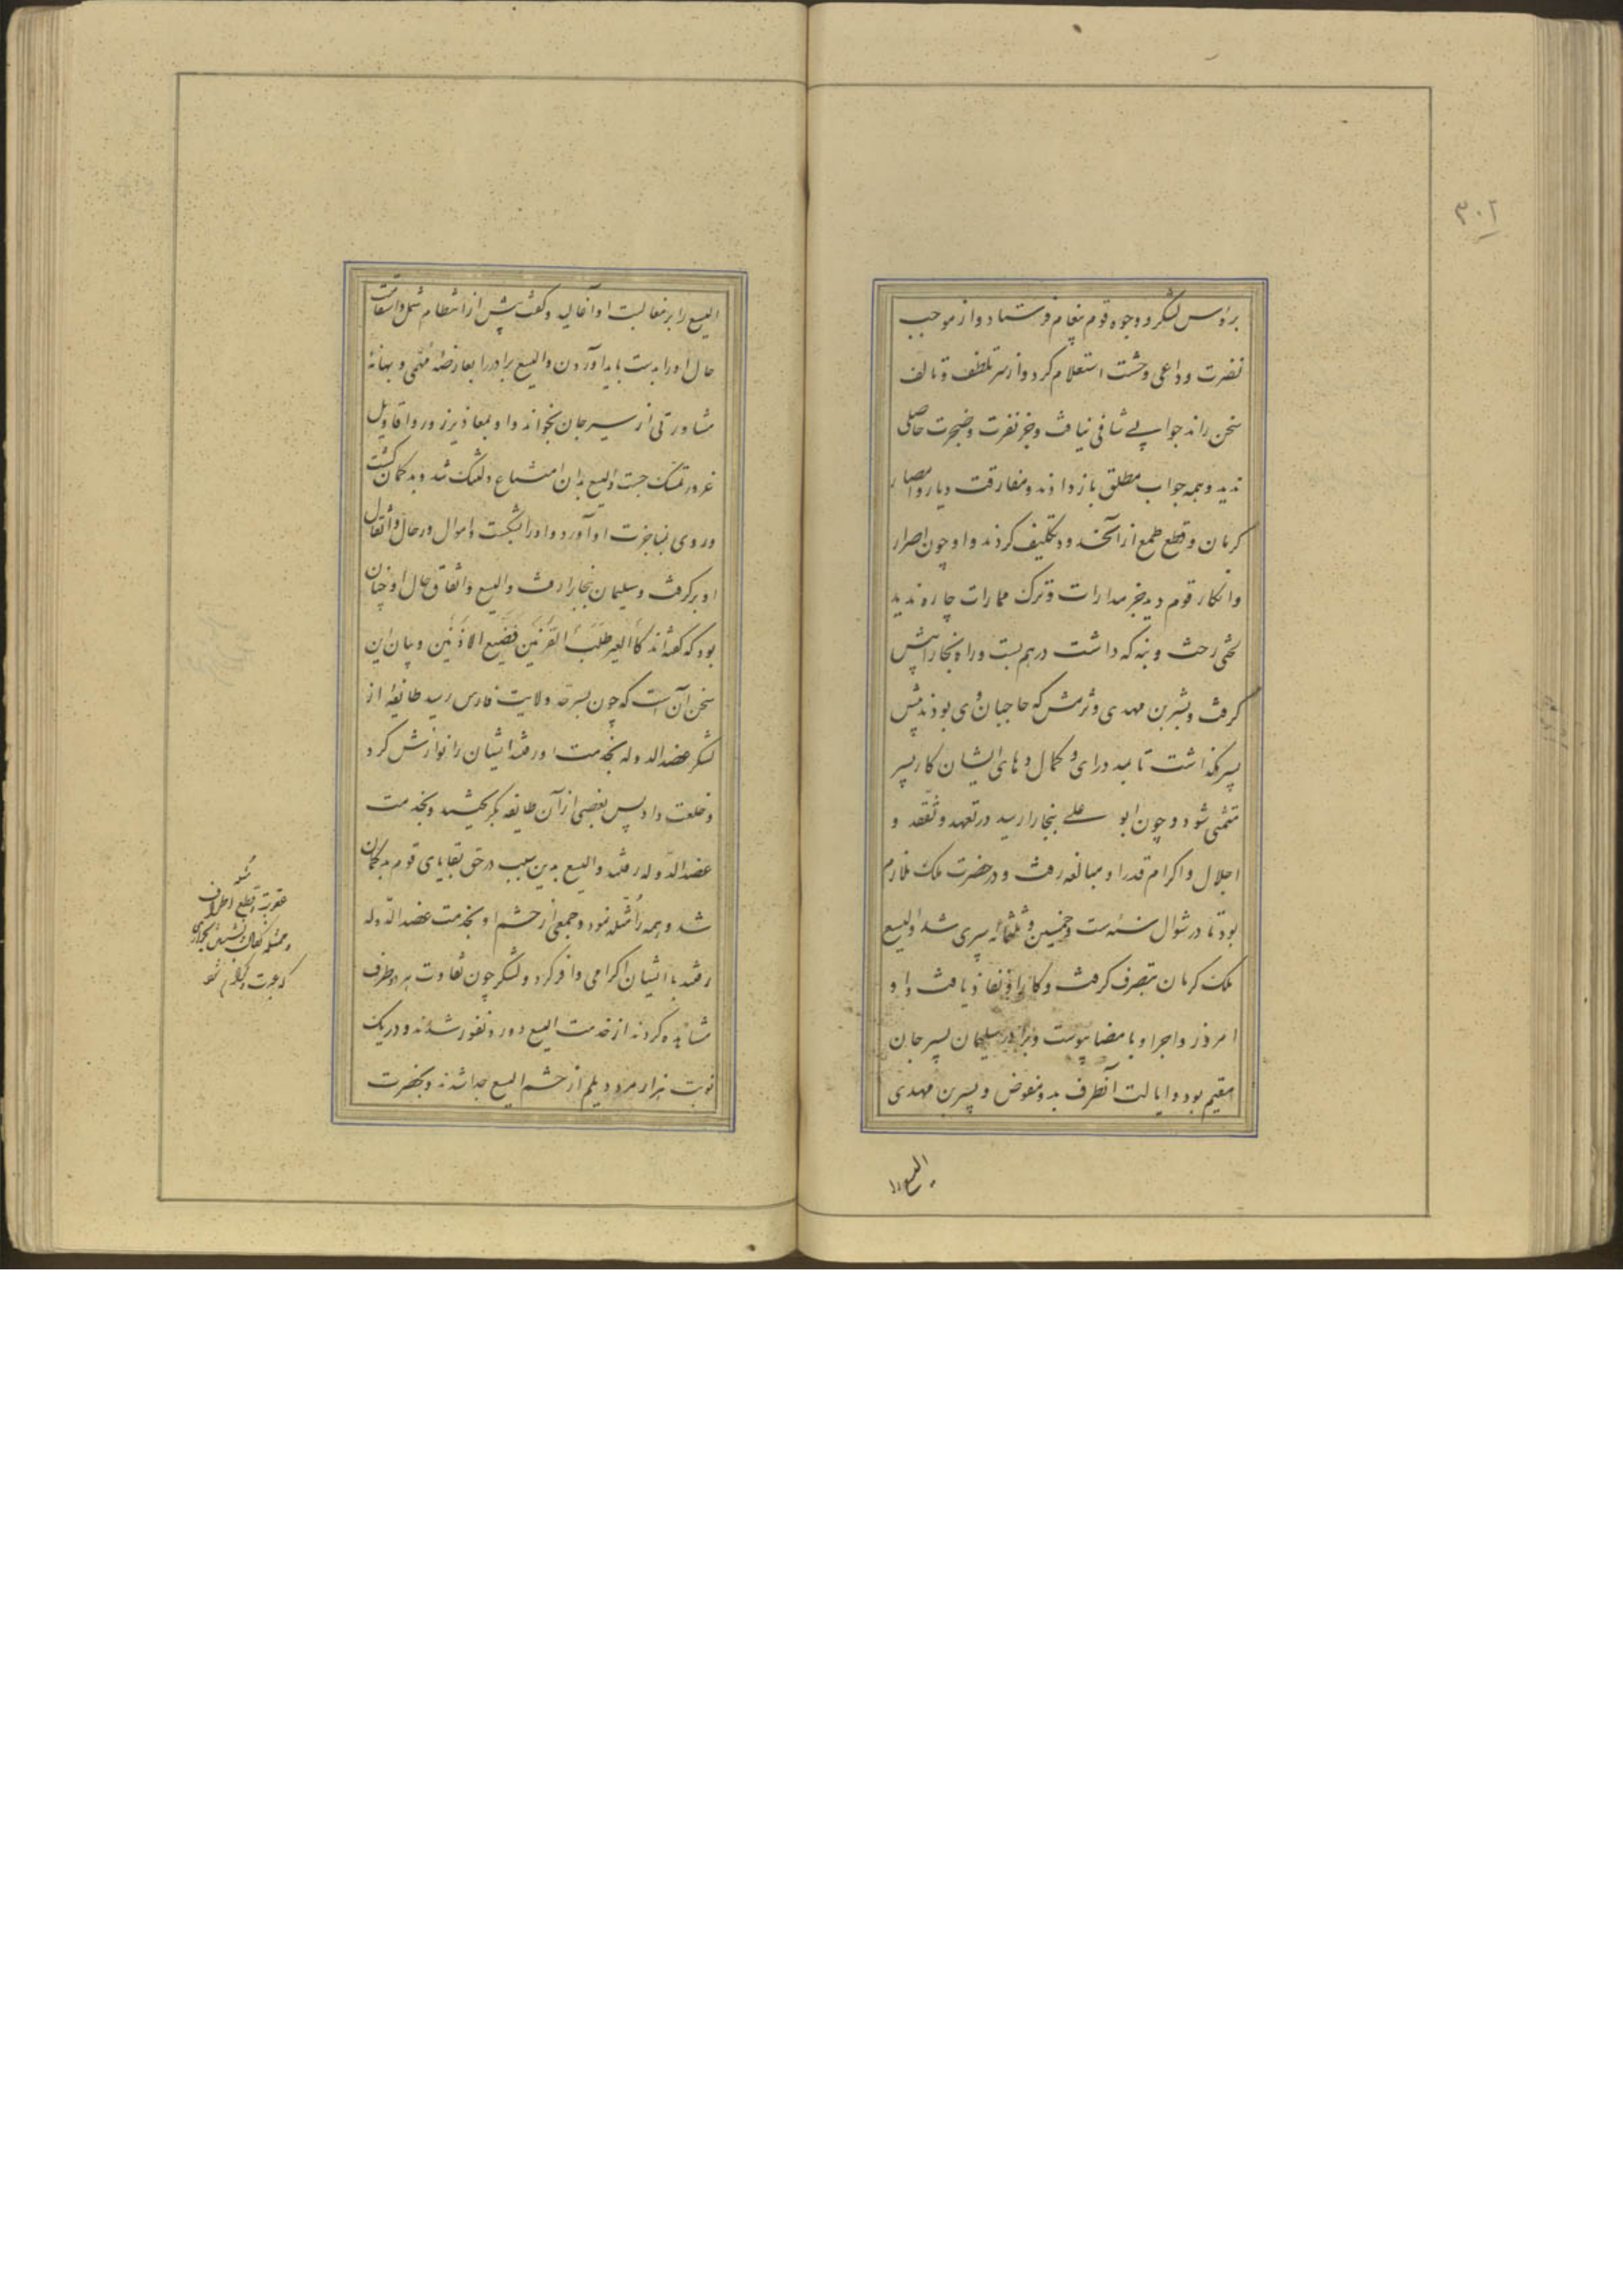 ۳۰۲
برؤس لشکر و وجوه قوم پیغام فرستاد و از موجب
نفرت و داعی وحشت استعلام کرد و از سر تلطف و تالف
سخن راند جوابی شافی نیافت و جز نفرت و ضجرت حاصلی
ندید و همه جواب مطلق باز دادند و مفارقت دیار و امصار
کرمان و قطع طمع از آن حدود تکلیف کردند و او چون اصرار
و انکار قوم دید جز مدارات و ترک ممارات چاره ندید
لختی رخت و بنه که داشت درهم بست و راه بخارا پیش
گرفت و بشر بن مهدی و ترمش که حاجبان وی بودند پیش
پسر بگذاشت تا بمدد رای و کمال دهای ایشان کار پسر
متمشی شود و چون ابو علی ببخارا رسید در تعهد و تفقد و
اجلال و اکرام قدر او مبالغه رفت و در حضرت ملک ملازم
بود تا در شوال سنه ست و خمسین و ثلثمائه سپری شد و الیسع
ملک کرمان بتصرف گرفت و کار او نفاذ یافت و او
امروز و اجرا و بامضا پیوست و برادر سلیمان بسیرجان
مقیم بود و ایالت آنطرف بدو مفوض و بشر بن مهدی
الیسع را
الیسع را بر مغالبت او آغالید و گفت پیش از انتظام شمل و اتساق
حال او را بدست باید آوردن و الیسع برادر را بعارضه مهمی و بهانهٔ
مشاورتی از سیرجان بخواند و او بمعاذیر زور و اقاویل
غرور تمسک جست و الیسع بدان امتناع دلتنگ شد و بدگمان گشت
و روی بمناجزت او آورد و او را بشکست و اموال و رحال و اثقال
او برگرفت و سلیمان ببخارا رفت و الیسع و اتفاق حال او چنان
بود که گفته‌اند کالعیر طلب القرنین فضیع الاذنین و بیان این
سخن آن است که چون بسرحد ولایت فارس رسید طایفهٔ از
لشکر عضد الدوله بخدمت او رفتند ایشان را نوازش کرد
و خلعت داد پس بعضی از آن طایفه بگریختند و بخدمت
عضد الدوله رفتند و الیسع بدین سبب در حق بقایای قوم بدگمان
شد و همه را مثله نمود و جمعی از حشم او بخدمت عضد الدوله
رفتند با ایشان اکرامی وافر کرد و لشکر چون تفاوت هر دو طرف
مشاهده کردند از خدمت الیسع دور و نفور شدند و در یک
نوبت هزار مرد دیلم از حشم الیسع جدا شدند و بحضرت
مثله
عقوبت و قطع اطراف